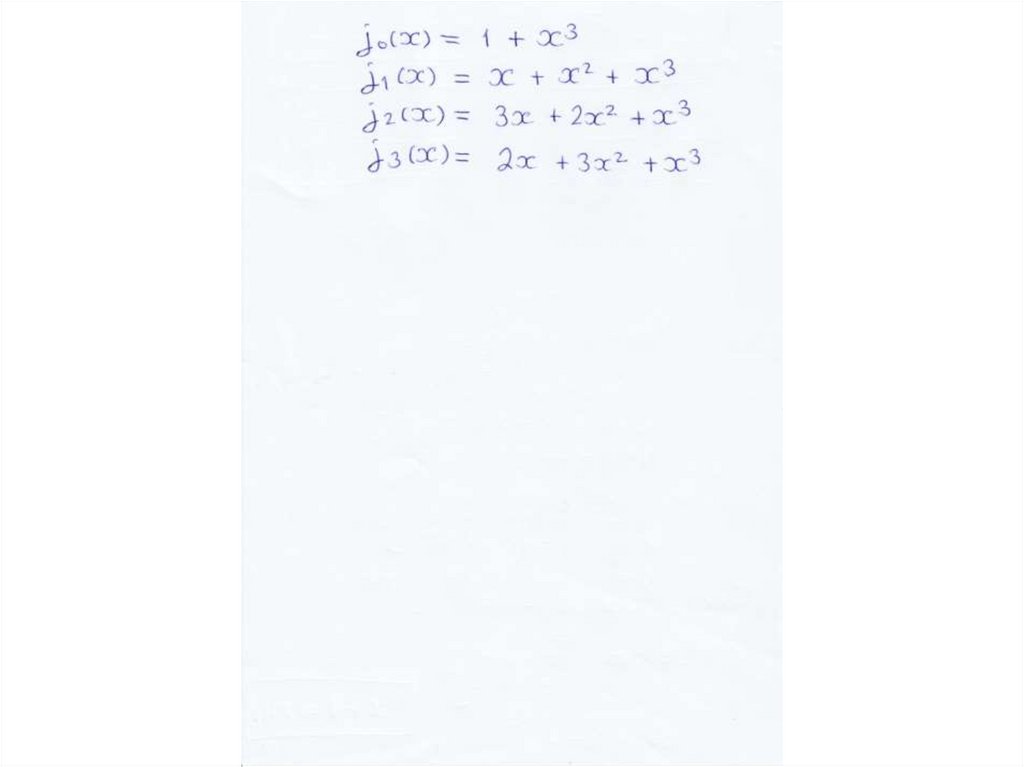 j₀(x) = 1 + x³
j₁(x) = x + x² + x³
j₂(x) = 3x + 2x² + x³
j₃(x) = 2x + 3x² + x³